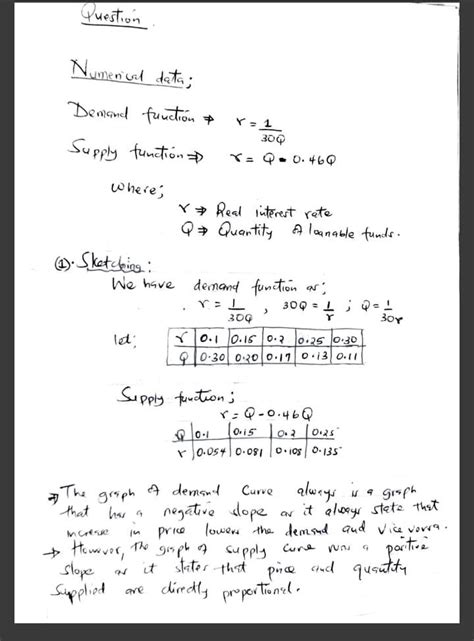 Question
Numerical data;
Demand function ⇒ r = 1/30Q
Supply function ⇒ r = Q - 0.46Q
Where;
r ⇒ Real interest rate
Q ⇒ Quantity of loanable funds.
(1). Sketching:
We have demand function as;
r = 1/30Q , 30Q = 1/r ; Q = 1/30r
let; r 0.1 0.15 0.2 0.25 0.30
Q 0.30 0.20 0.17 0.13 0.11
Supply function;
r = Q - 0.46Q
Q 0.1 0.15 0.2 0.25
r 0.054 0.081 0.108 0.135
⇒ The graph of demand curve always is a graph
that has a negative slope as it always state that
increase in price lowers the demand and vice versa.
→ However, the graph of supply curve has a positive
slope as it states that price and quantity
supplied are directly proportional.